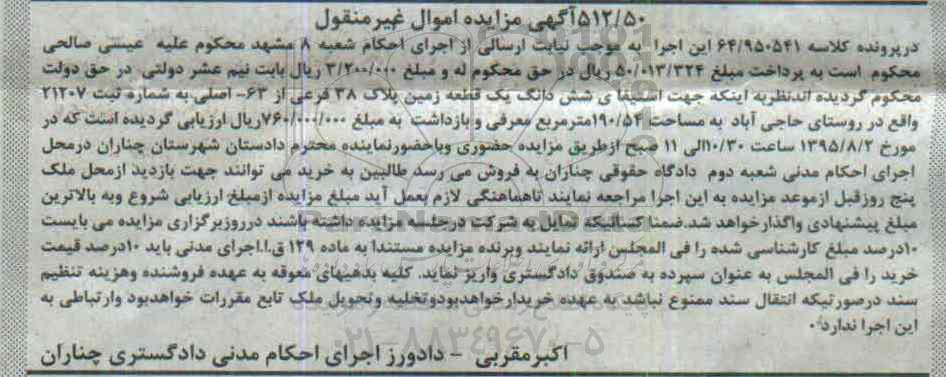 ۵۱۲/۵۰آگهی مزایده اموال غیرمنقول
درپرونده کلاسه ۶۴/۹۵۰۵۴۱ این اجرا به موجب نیابت ارسالی از اجرای احکام شعبه ۸ مشهد محکوم علیه عیسی صالحی
محکوم است به پرداخت مبلغ ۵۰/۰۱۳/۳۲۴ ریال در حق محکوم له و مبلغ ۳/۲۰۰/۰۰۰ ریال بابت نیم عشر دولتی در حق دولت
محکوم گردیده اندنظربه اینکه جهت استیفا ی شش دانگ یک قطعه زمین پلاک ۳۸ فرعی از ۶۳- اصلی به شماره ثبت ۲۱۲۰۷
واقع در روستای حاجی آباد به مساحت ۱۹۰/۵۴مترمربع معرفی و بازداشت به مبلغ ۷۶۰/۰۰۰/۰۰۰ریال ارزیابی گردیده است که در
مورخ ۱۳۹۵/۸/۲ ساعت ۱۰/۳۰الی ۱۱ صبح ازطریق مزایده حضوری وباحضورنماینده محترم دادستان شهرستان چناران درمحل
اجرای احکام مدنی شعبه دوم دادگاه حقوقی چناران به فروش می رسد طالبین به خرید می توانند جهت بازدید ازمحل ملک
پنج روزقبل ازموعد مزایده به این اجرا مراجعه نمایند تاهماهنگی لازم بعمل آید مبلغ مزایده ازمبلغ ارزیابی شروع وبه بالاترین
مبلغ پیشنهادی واگذارخواهد شد.ضمنا کسانیکه تمایل به شرکت درجلسه مزایده داشته باشند درروزبرگزاری مزایده می بایست
۱۰درصد مبلغ کارشناسی شده را فی المجلس ارائه نمایند وبرنده مزایده مستندا به ماده ۱۲۹ ق.ا.اجرای مدنی باید ۱۰درصد قیمت
خرید را فی المجلس به عنوان سپرده به صندوق دادگستری واریز نماید. کلیه بدهیهای معوقه به عهده فروشنده وهزینه تنظیم
سند درصورتیکه انتقال سند ممنوع نباشد به عهده خریدارخواهدبودوتخلیه وتحویل ملک تابع مقررات خواهدبود وارتباطی به
این اجرا ندارد.
۰۲۱-۸۸۳۴۹۶۷۰-۵
اکبرمقربی - دادورز اجرای احکام مدنی دادگستری چناران